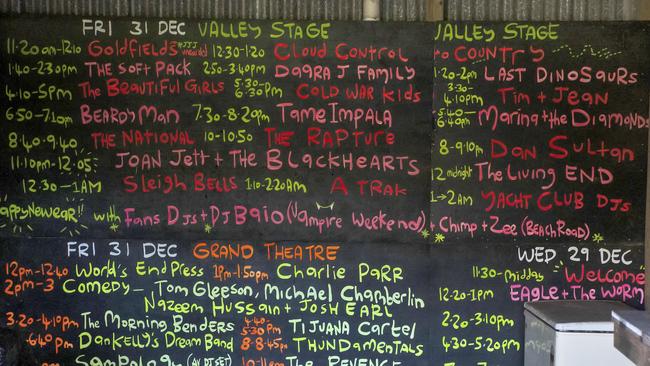 FRI 31 DEC VALLEY STAGE
11·20am-12·10 GOLDFIELDS 12·30-1·20 CLOUD CONTROL
1·40-2·30pm THE SOFT PACK 2·50-3·40PM DAARA J FAMILY
4·10-5PM The BEAUTIFUL GIRLS 5:30-6:20PM COLD WAR KIDS
6·50-7·10PM BEARDYMAN 7·30-8·20pm TAME IMPALA
8·40-9·40 THE NATIONAL 10-10:50 THE RAPTURE
11:10pm-12.05 JOAN JETT + THE BLACKHEARTS
12·30-1AM SLEIGH BELLS 1·10-2·20AM A TRAK
HAPPY NEW YEAR! with FANS DJs + DJ BAIO (VAMPIRE WEEKEND) + CHIMP + ZEE (BEACH ROAD)
VALLEY STAGE
to COUNTRY
1·20-2pm LAST DINOSAURS
3·30-4·10PM TIM + JEAN
5·40-6·40PM MARINA + the DIAMONDS
8-9pm DAN SULTAN
12 midnight THE LIVING END
1-2AM YACHT CLUB DJs
FRI 31 DEC GRAND THEATRE
12PM-12·40 WORLD'S END PRESS 1pm-1·50PM CHARLIE PARR
2pm-3 COMEDY - TOM GLEESON, MICHAEL CHAMBERLIN
NAZEEM HUSSAIN + JOSH EARL
3·20-4·10PM THE MORNING BENDERS 4·40-5·30PM TIJUANA CARTEL
6·40PM DAN KELLY'S DREAM BAND 8-8·45PM THUNDAMENTALS
SAMPOLOGY (AV DJ SET) 10-11PM THE REVENGE
WED 29 DEC
11:30-midday WELCOME
12·20-1PM EAGLE + THE WORM
2·20-3·10pm
4·30-5·20PM